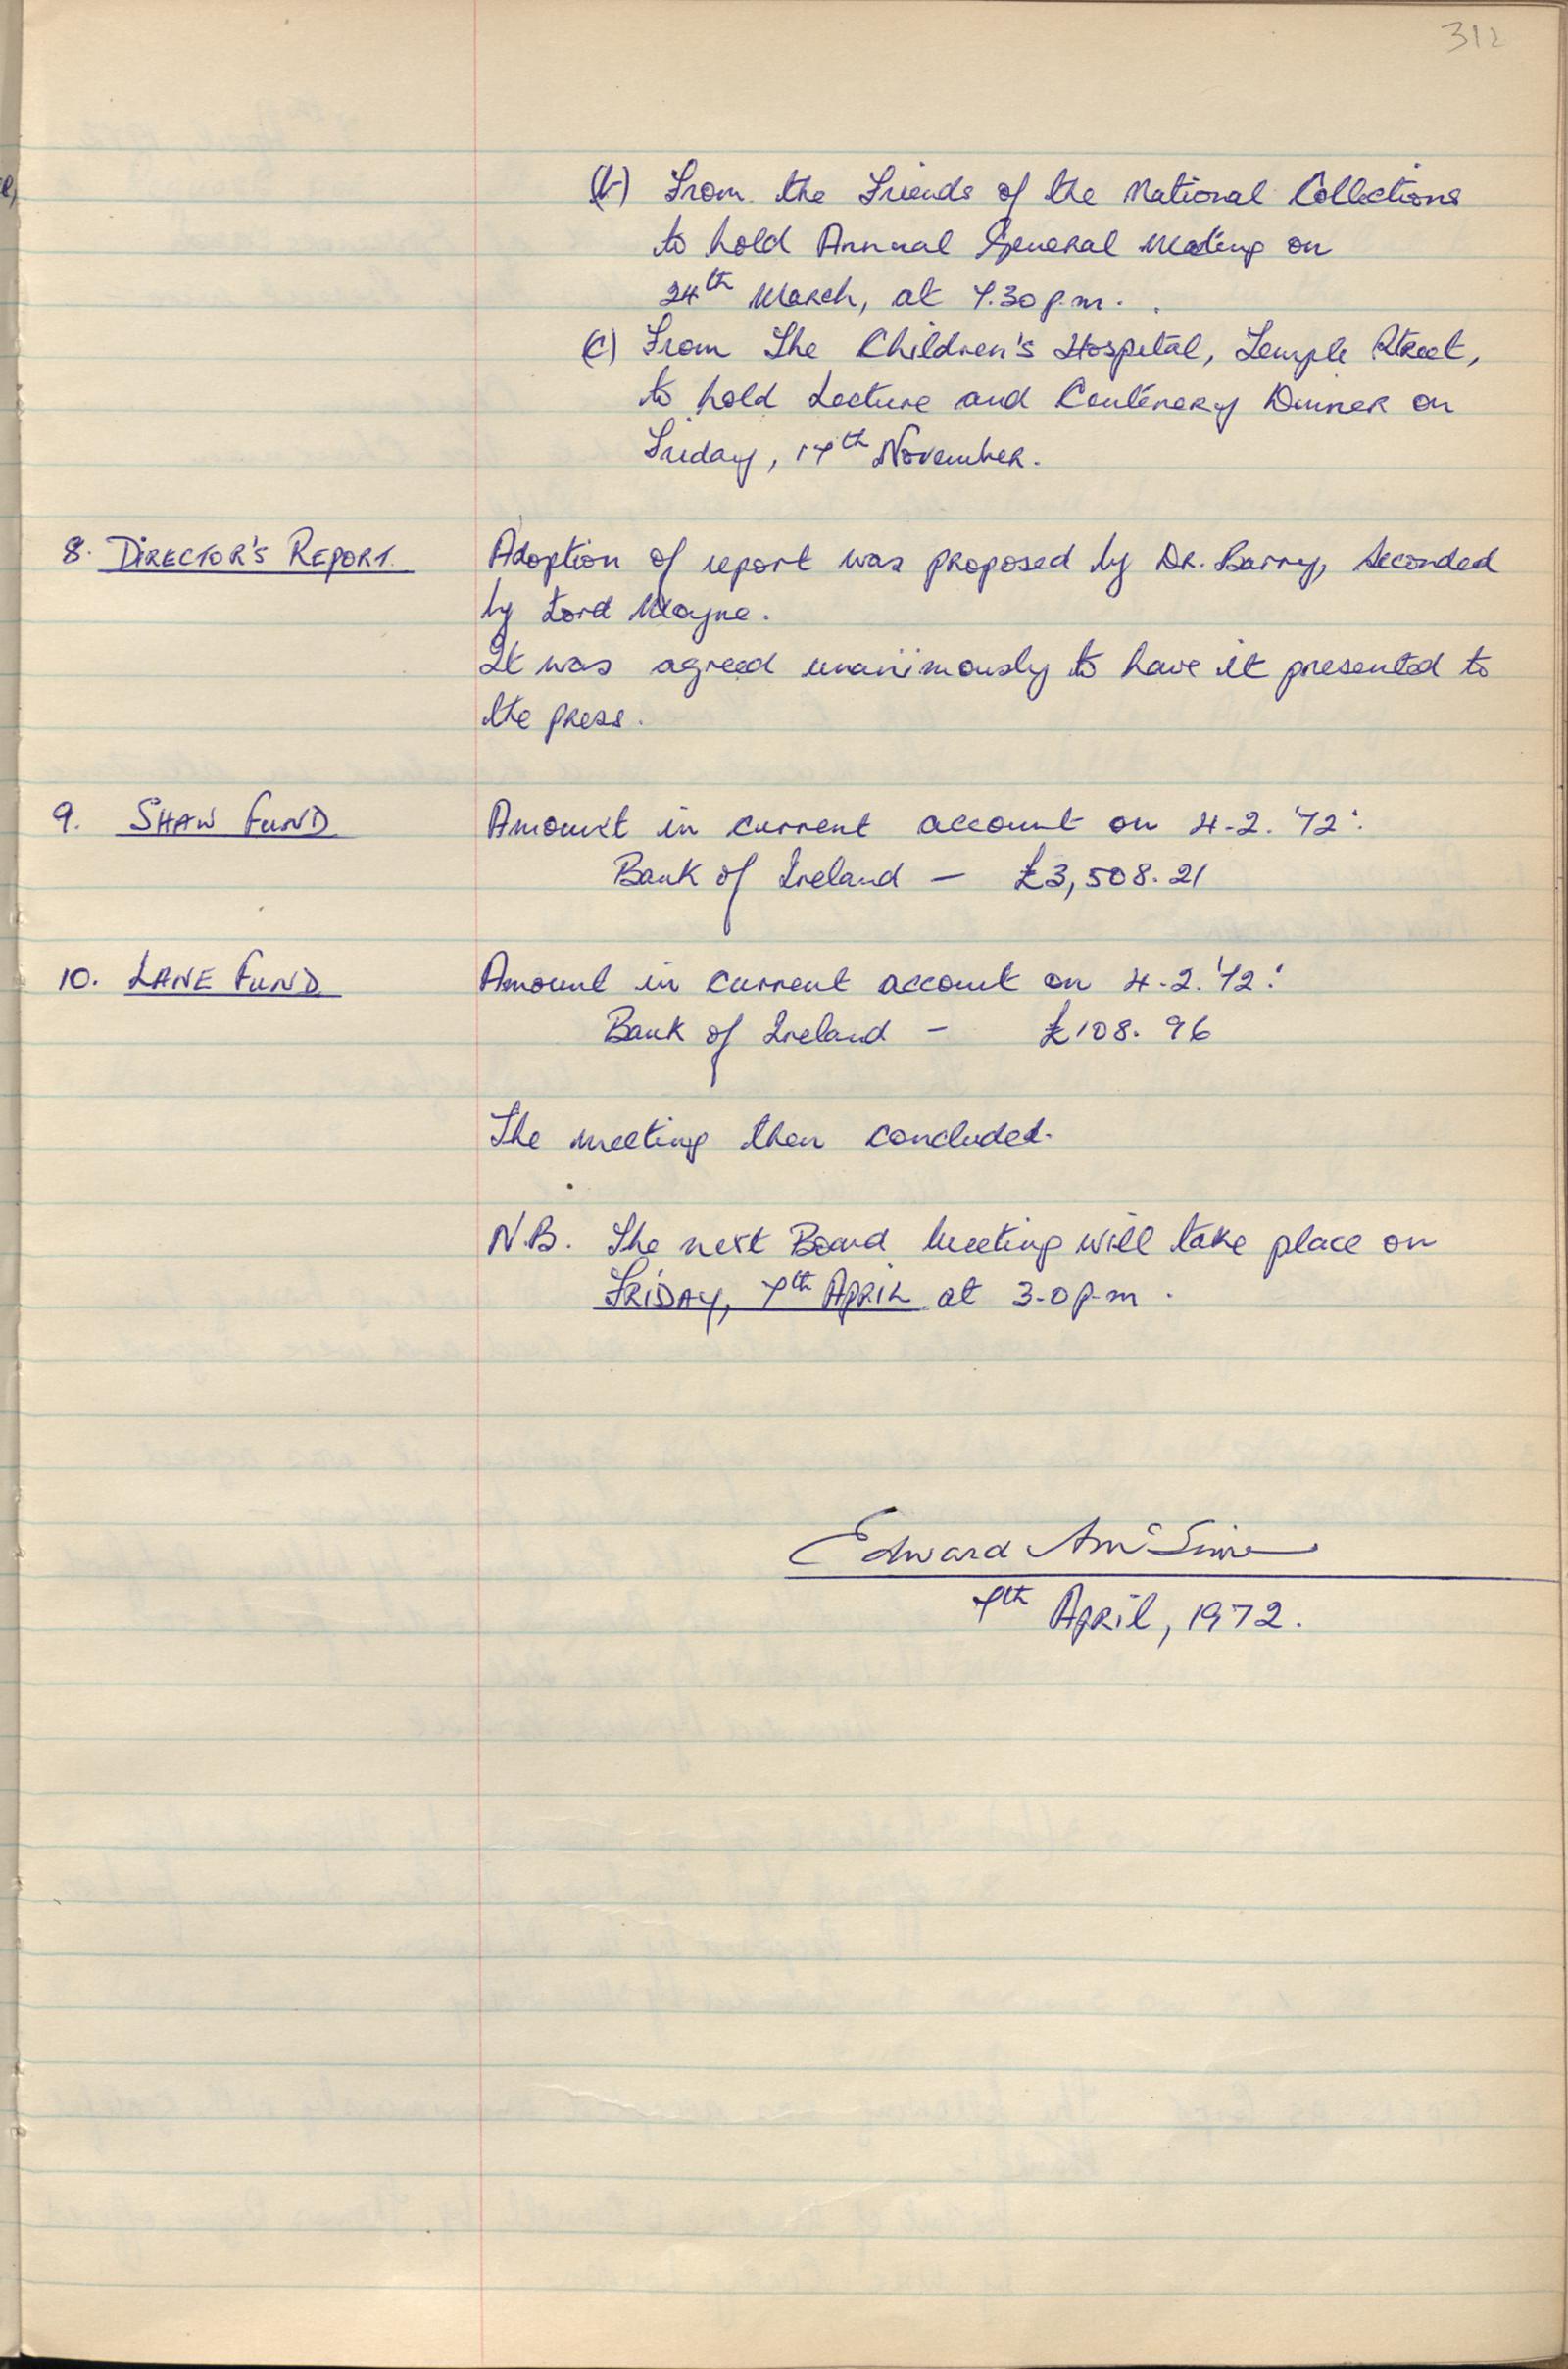 312
(b) From the Friends of the National Collections
to hold Annual General Meeting on
24th March, at 7.30 p.m.
(c) From The Children's Hospital, Temple Street,
to hold Lecture and Centenery Dinner on
Friday, 17th November.
8. DIRECTOR'S REPORT. Adoption of report was proposed by Dr. Barry, seconded
by Lord Moyne.
It was agreed unanimously to have it presented to
the press.
9. SHAW FUND Amount in current account on 4-2.'72:
Bank of Ireland — £3,508.21
10. LANE FUND Amount in current account on 4-2.'72:
Bank of Ireland — £108.96
The meeting then concluded.
N.B. The next Board Meeting will take place on
FRIDAY, 7th APRIL at 3-0 p.m.
Edward A McGuire
7th April, 1972.